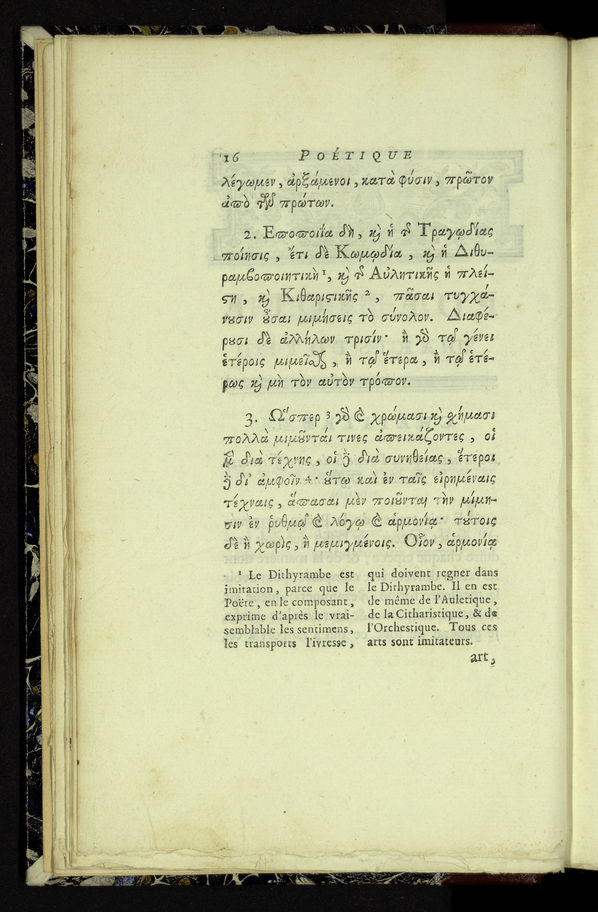 16 POÉTIQUE
λέγωμεν, ἀρξάμενοι, κατὰ φύσιν, πρῶτον
ἀπὸ τῶν πρώτων.
2. Εποποιΐα δὴ, καὶ ἡ τῆς Τραγῳδίας
ποίησις, ἔτι δὲ Κωμῳδία, καὶ ἡ Διθυ-
ραμβοποιητικὴ ¹, καὶ τῆς Αὐλητικῆς ἡ πλεί-
στη, καὶ Κιθαριστικῆς ², πᾶσαι τυγχά-
νουσιν οὖσαι μιμήσεις τὸ σύνολον. Διαφέ-
ρουσι δὲ ἀλλήλων τρισίν· ἢ γὰρ τῷ γένει
ἑτέροις μιμεῖσθαι, ἢ τῷ ἕτερα, ἢ τῷ ἑτέ-
ρως καὶ μὴ τὸν αὐτὸν τρόπον.
3. Ὥσπερ ³ γὰρ καὶ χρώμασι καὶ σχήμασι
πολλὰ μιμοῦνταί τινες ἀπεικάζοντες, οἱ
μὲν διὰ τέχνης, οἱ δὲ διὰ συνηθείας, ἕτεροι
δὲ δι' ἀμφοῖν ⁴· οὕτω καὶ ἐν ταῖς εἰρημέναις
τέχναις, ἅπασαι μὲν ποιοῦνται τὴν μίμη-
σιν ἐν ῥυθμῷ καὶ λόγῳ καὶ ἁρμονίᾳ· τούτοις
δὲ ἢ χωρὶς, ἢ μεμιγμένοις. Οἷον, ἁρμονίᾳ
¹ Le Dithyrambe est
imitation, parce que le
Poëte, en le composant,
exprime d'après le vrai-
semblable les sentimens,
les transports l'ivresse,
qui doivent regner dans
le Dithyrambe. Il en est
de même de l'Auletique,
de la Citharistique, & de
l'Orchestique. Tous ces
arts sont imitateurs.
art,